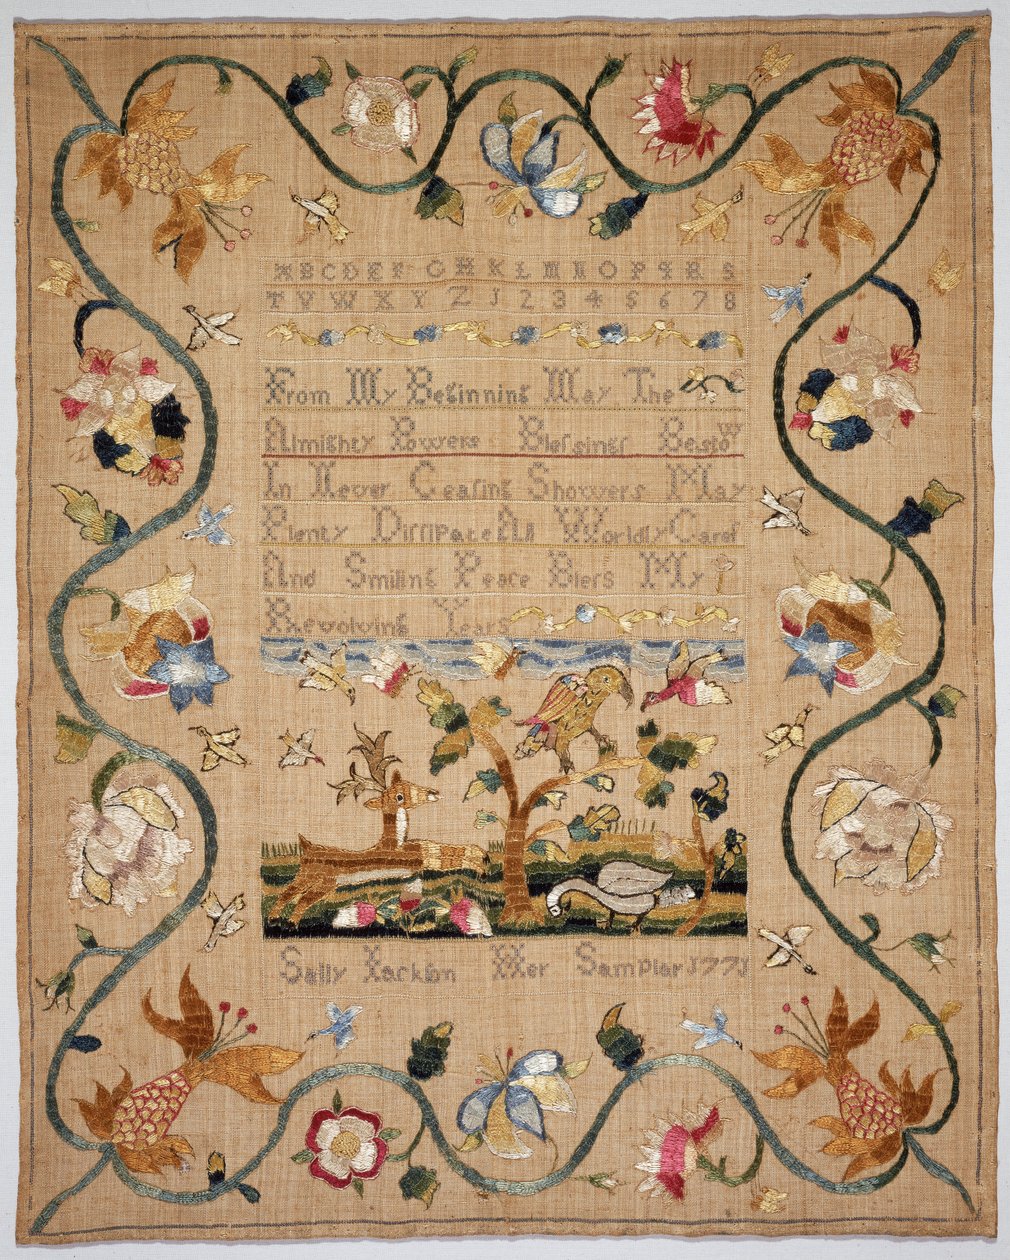 ABCDEF GHKLMNOPQRS
TVWXYZ J2345678
From My Beginning May The
Almighty Powers Blessings Bestow
In Never Ceasing Showers May
Plenty Dissipate All Worldly Cares
And Smiling Peace Blers My
Revolving Years
Sally Jackson Her Sampler 1771